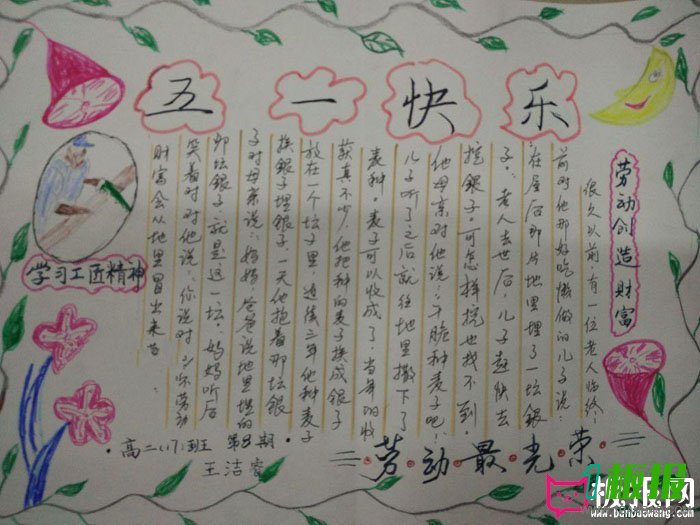 五一快乐
劳动创造财富
很久以前,有一位老人临终
前对他那好吃懒做的儿子说:
在屋后那片地里埋了一坛銀
子。老人去世后,儿子赶快去
挖銀子。可怎样挖也找不到
他母亲对他说:干脆种麦子吧!
儿子听了之后就往地里撒下了
麦种。麦子可以收成了,当年的收
获真不少,他把种的麦子换成銀子
放在一个坛子里,连续三年他种麦子
换銀子埋銀子,一天他抱着那坛銀
子对母亲说:妈妈,爸爸说地里埋的
那坛銀子就是这一坛,妈妈听后
笑着对对他说:你说对
劳动
财富会从地里冒出来
学习工匠精神
高二(17)班 第8期
王洁
劳动最光荣
板报网
www.banbaowang.com